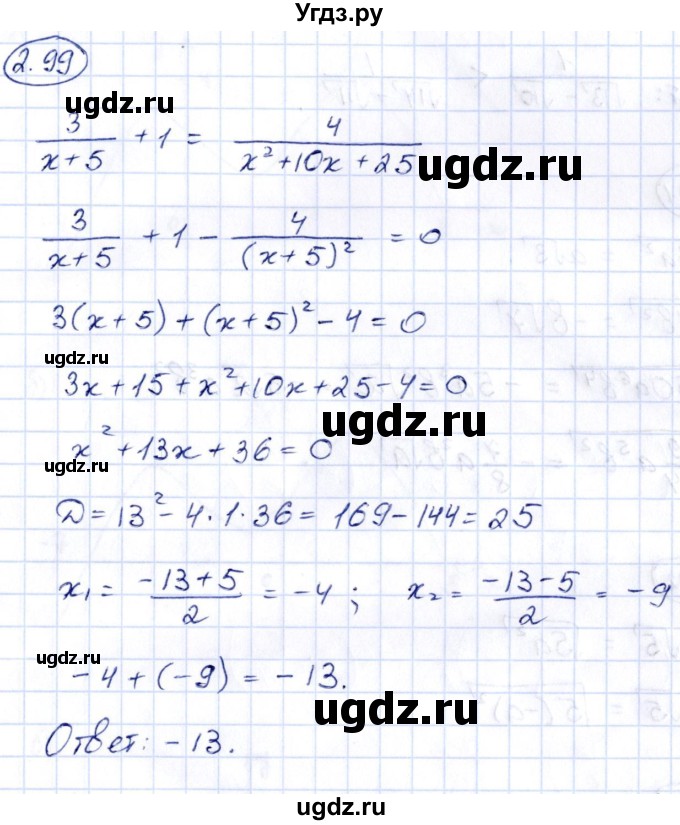 Угдз.ру
2.99
ugdz.ru
3/(x+5) + 1 = 4/(x²+10x+25)
ugdz.ru
3/(x+5) + 1 - 4/(x+5)² = 0
3(x+5)+(x+5)²-4=0
ugdz.ru
3x+15+x²+10x+25-4=0
ugdz.ru
x²+13x+36=0
ugdz.ru
Д=13²-4·1·36=169-144=25
x₁ = (-13+5)/2 = -4; x₂ = (-13-5)/2 = -9
ugdz.ru
-4+(-9)=-13.
ugdz.ru
Ответ: -13.
ugdz.ru